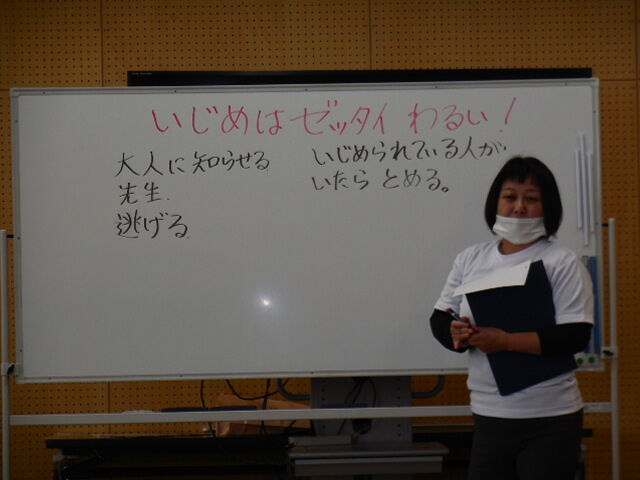 いじめはゼッタイわるい!
大人に知らせる
先生.
逃げる
いじめられている人が
いたらとめる。